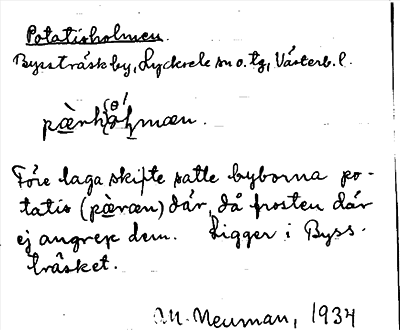 Potatisholmen.
Byssträsk by, Lycksele sn o. tg, Västerb. l.
pæ̀rhòl̩mæn.
Före laga skifte satte byborna po-
tatis (pæ̀ræn) där, då frosten där
ej angrep dem. Ligger i Byss-
träsket.
M. Neuman, 1934